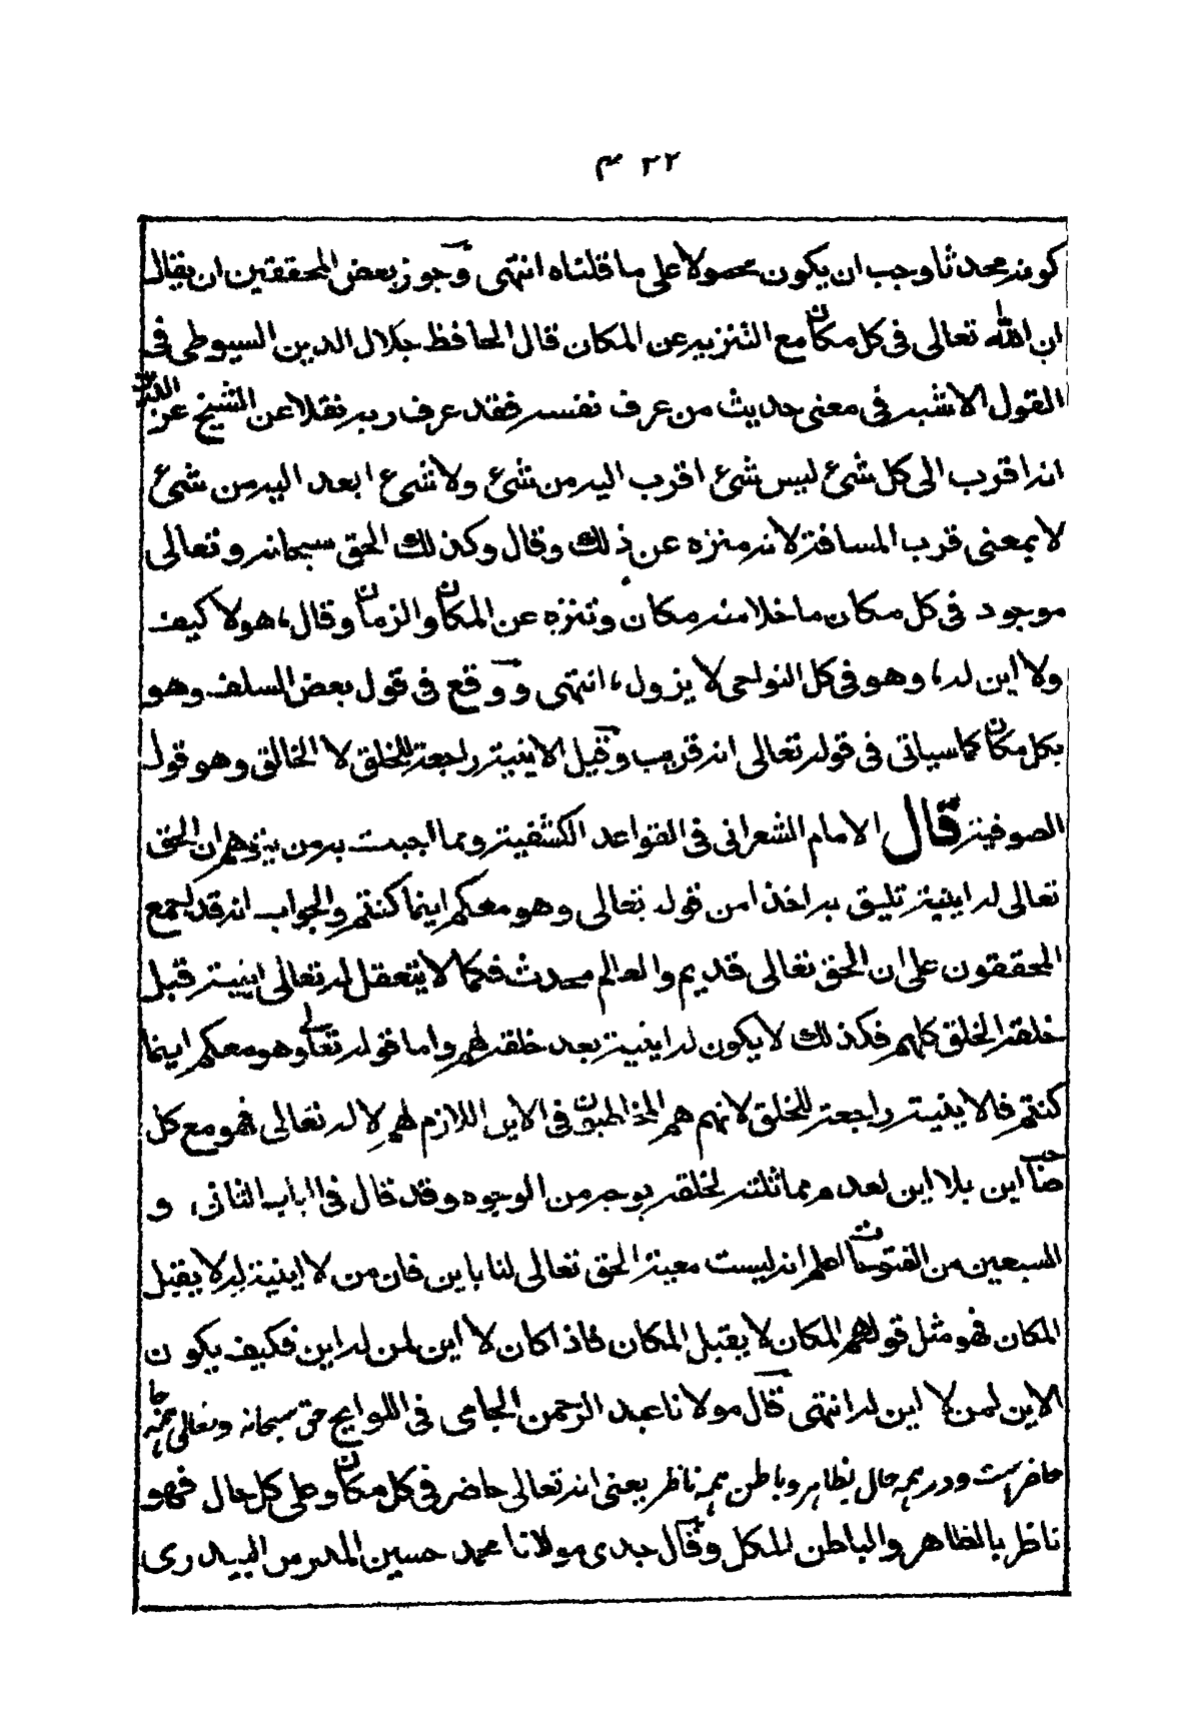 ٤٢٢
كونه محدثا وجب ان يكون محمولا على ما قلناه انتهى وجوز بعض المحققين ان يقال
ان الله تعالى فى كل مكان مع التنزيه عن المكان قال الحافظ جلال الدين السيوطى فى
القول الاشبه فى معنى حديث من عرف نفسه فقد عرف ربه نقلا عن الشيخ عز الدين
انه اقرب الى كل شئ ليس شئ اقرب اليه من شئ ولا شئ ابعد اليه من شئ
لا بمعنى قرب المسافة لانه منزه عن ذلك وقال وكذلك الحق سبحانه وتعالى
موجود فى كل مكان ما خلا منه مكان وتنزه عن المكان والزمان وقال، هو لا كيف
ولا اين له، وهو فى كل النواحى لا يزول، انتهى ووقع فى قول بعض السلف وهو
بكل مكان كما سياتى فى قوله تعالى انه قريب وقيل الاينية راجعة للخلق لا الخالق وهو قول
الصوفية قال الامام الشعرانى فى القواعد الكشفية ومما اجبت به من يتوهم ان الحق
تعالى له اينية تليق به اخذا من قوله تعالى وهو معكم اينما كنتم والجواب انه قد اجمع
المحققون على ان الحق تعالى قديم والعالم محدث فكما لا يتعقل له تعالى اينية قبل
خلقه الخلق كلهم فكذلك لا يكون له اينية بعد خلقه لهم واما قوله تعالى وهو معكم اينما
كنتم فالاينية راجعة للخلق لانهم هم المخاطبون فى الاين اللازم لهم لا له تعالى فهو مع كل
صاحب اين بلا اين لعدم مماثلته لخلقه بوجه من الوجوه وقد قال فى الباب الثانى و
السبعين من الفتوحات اعلم انه ليست معية الحق تعالى لنا باين فان من لا اينية له لا يقبل
المكان فهو مثل قولهم المكان لا يقبل المكان فاذا كان لا اين لمن له اين فكيف يكون
الاين لمن لا اين له انتهى قال مولانا عبد الرحمن الجامى فى اللوايح حق سبحانه وتعالى همه جا
حاضرست ودر همه حال بظاهر وباطن همه ناظر يعنى انه تعالى حاضر فى كل مكان وعلى كل حال فهو
ناظر بالظاهر والباطن للكل وقال جدى مولانا محمد حسين المدرس البيدرى